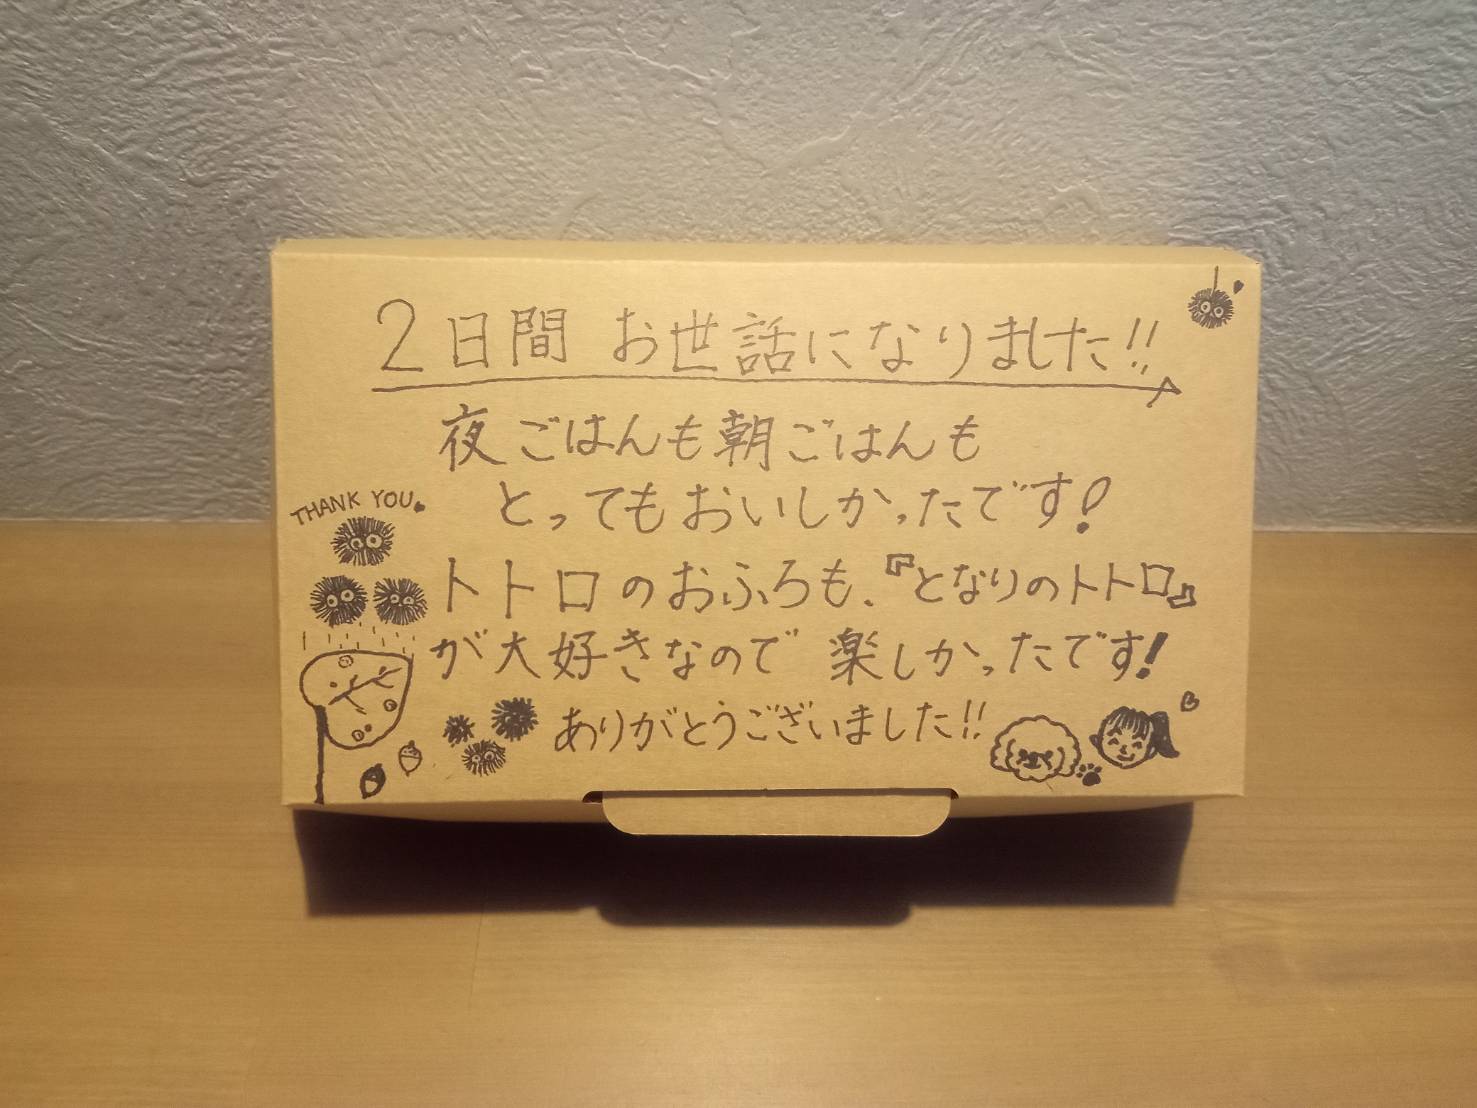 2日間 お世話になりました!!
夜ごはんも朝ごはんも
とってもおいしかったです!
THANK YOU
トトロのおふろも、『となりのトトロ』
が大好きなので 楽しかったです!
ありがとうございました!!